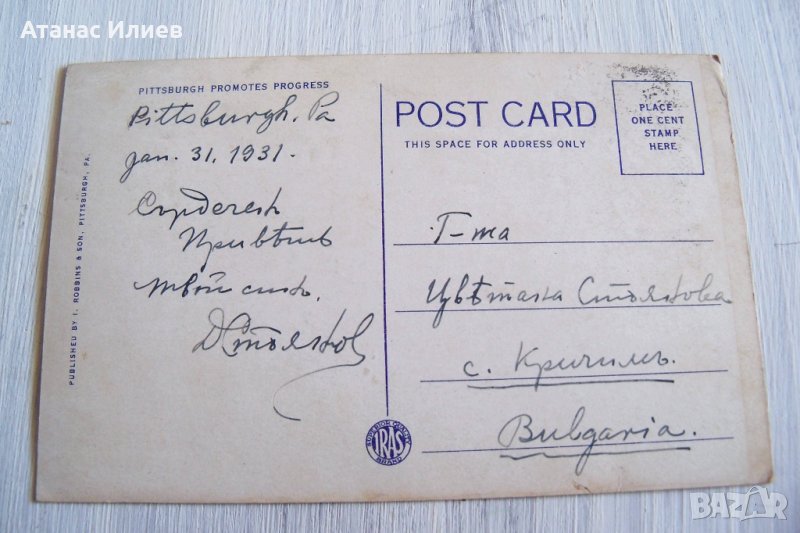 Атанас Илиев
PITTSBURGH PROMOTES PROGRESS
Pittsburgh, Pa
Jan. 31, 1931.
Сърдеченъ
Привѣтъ
твой синъ.
ДСтояновъ
PUBLISHED BY I. ROBBINS & SON, PITTSBURGH, PA.
POST CARD
THIS SPACE FOR ADDRESS ONLY
PLACE
ONE CENT
STAMP
HERE
Г-жа
Цвѣтана Стоянова
с. Кричимъ.
Bulgaria.
SUPERIOR QUALITY
IRAS
BRAND
BAZAR